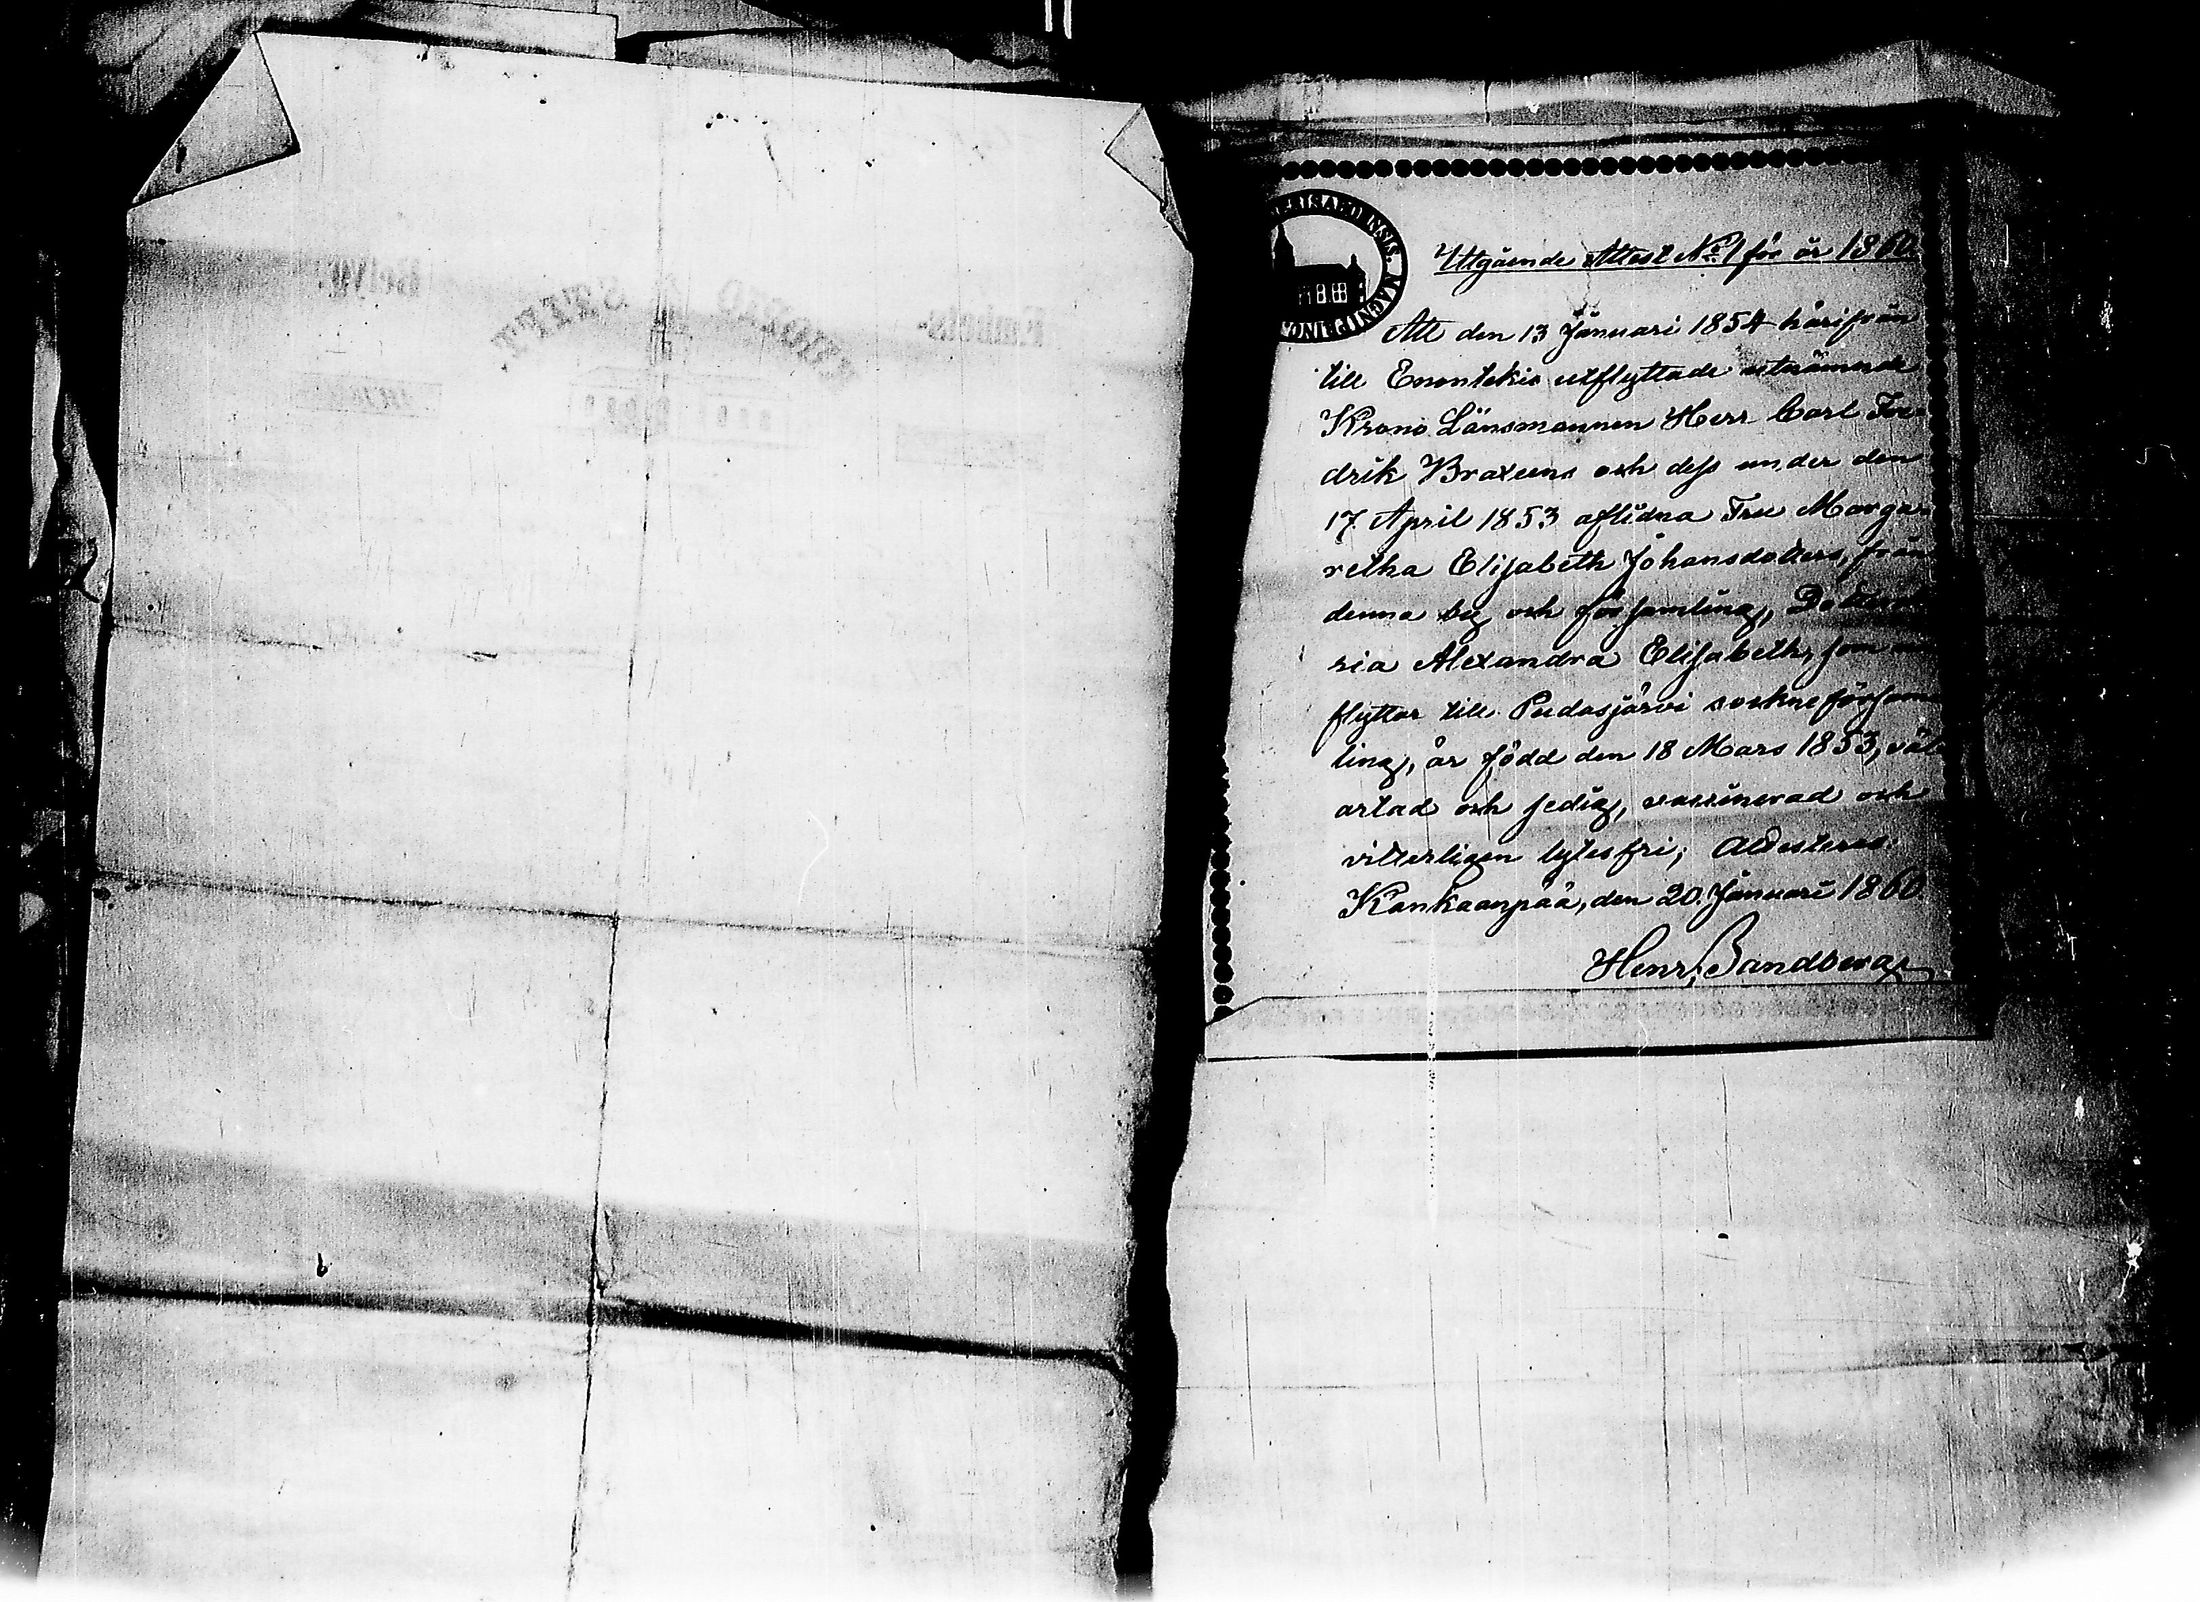 Utgående Attest No 1 för år 1860.
Att den 13 Januari 1854 härifrån
till Enontekis utflyttade utnämnde
Krono Länsmannen Herr Carl Fre-
drik Braxens och dess under den
17 April 1853 aflidna Fru Marga-
retha Elisabeth Johansdotters, från
denna by och församling, Dotter
ria Alexandra Elisabeth, som nu
flyttar till Pudasjärvi sockneförsam
ling, är född den 18 Mars 1853, väl
artad och sedig, vaccinerad och
vitterligen lytesfri; Attesteras.
Kankaanpää, den 20. Januari 1860.
Henr. Sandberg